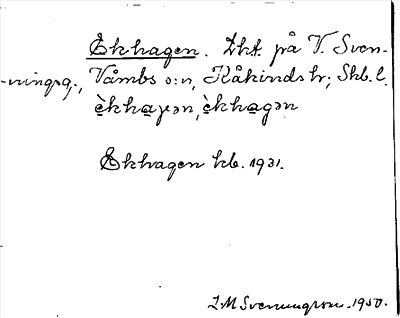 Ekhagen. Lht. på V. Sven-
-ningsg., Våmbs s:n, Kåkinds hr; Skb. l.
è̞khaɣən, è̞khagən
Ekhagen kb. 1931.
I. M Svenungsson. 1950.